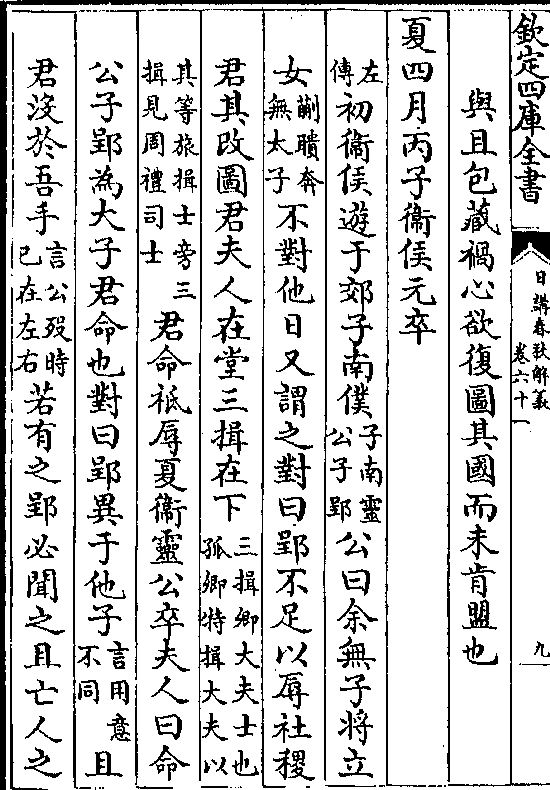 欽定四庫全書
日講春秋解義
卷六十一
九
與且包藏禍心欲復圖其國而未肯盟也
夏四月丙子衞侯元卒
左傳初衞侯遊于郊子南僕子南靈公子郢公曰余無子將立
女蒯聵奔無太子不對他日又謂之對曰郢不足以辱社稷
君其改圖君夫人在堂三揖在下三揖卿大夫士也孤卿特揖大夫以
其等旅揖士旁三揖見周禮司士君命祗辱夏衞靈公卒夫人曰命
公子郢為大子君命也對曰郢異于他子言用意不同且
君沒於吾手言公歿時已在左右若有之郢必聞之且亡人之